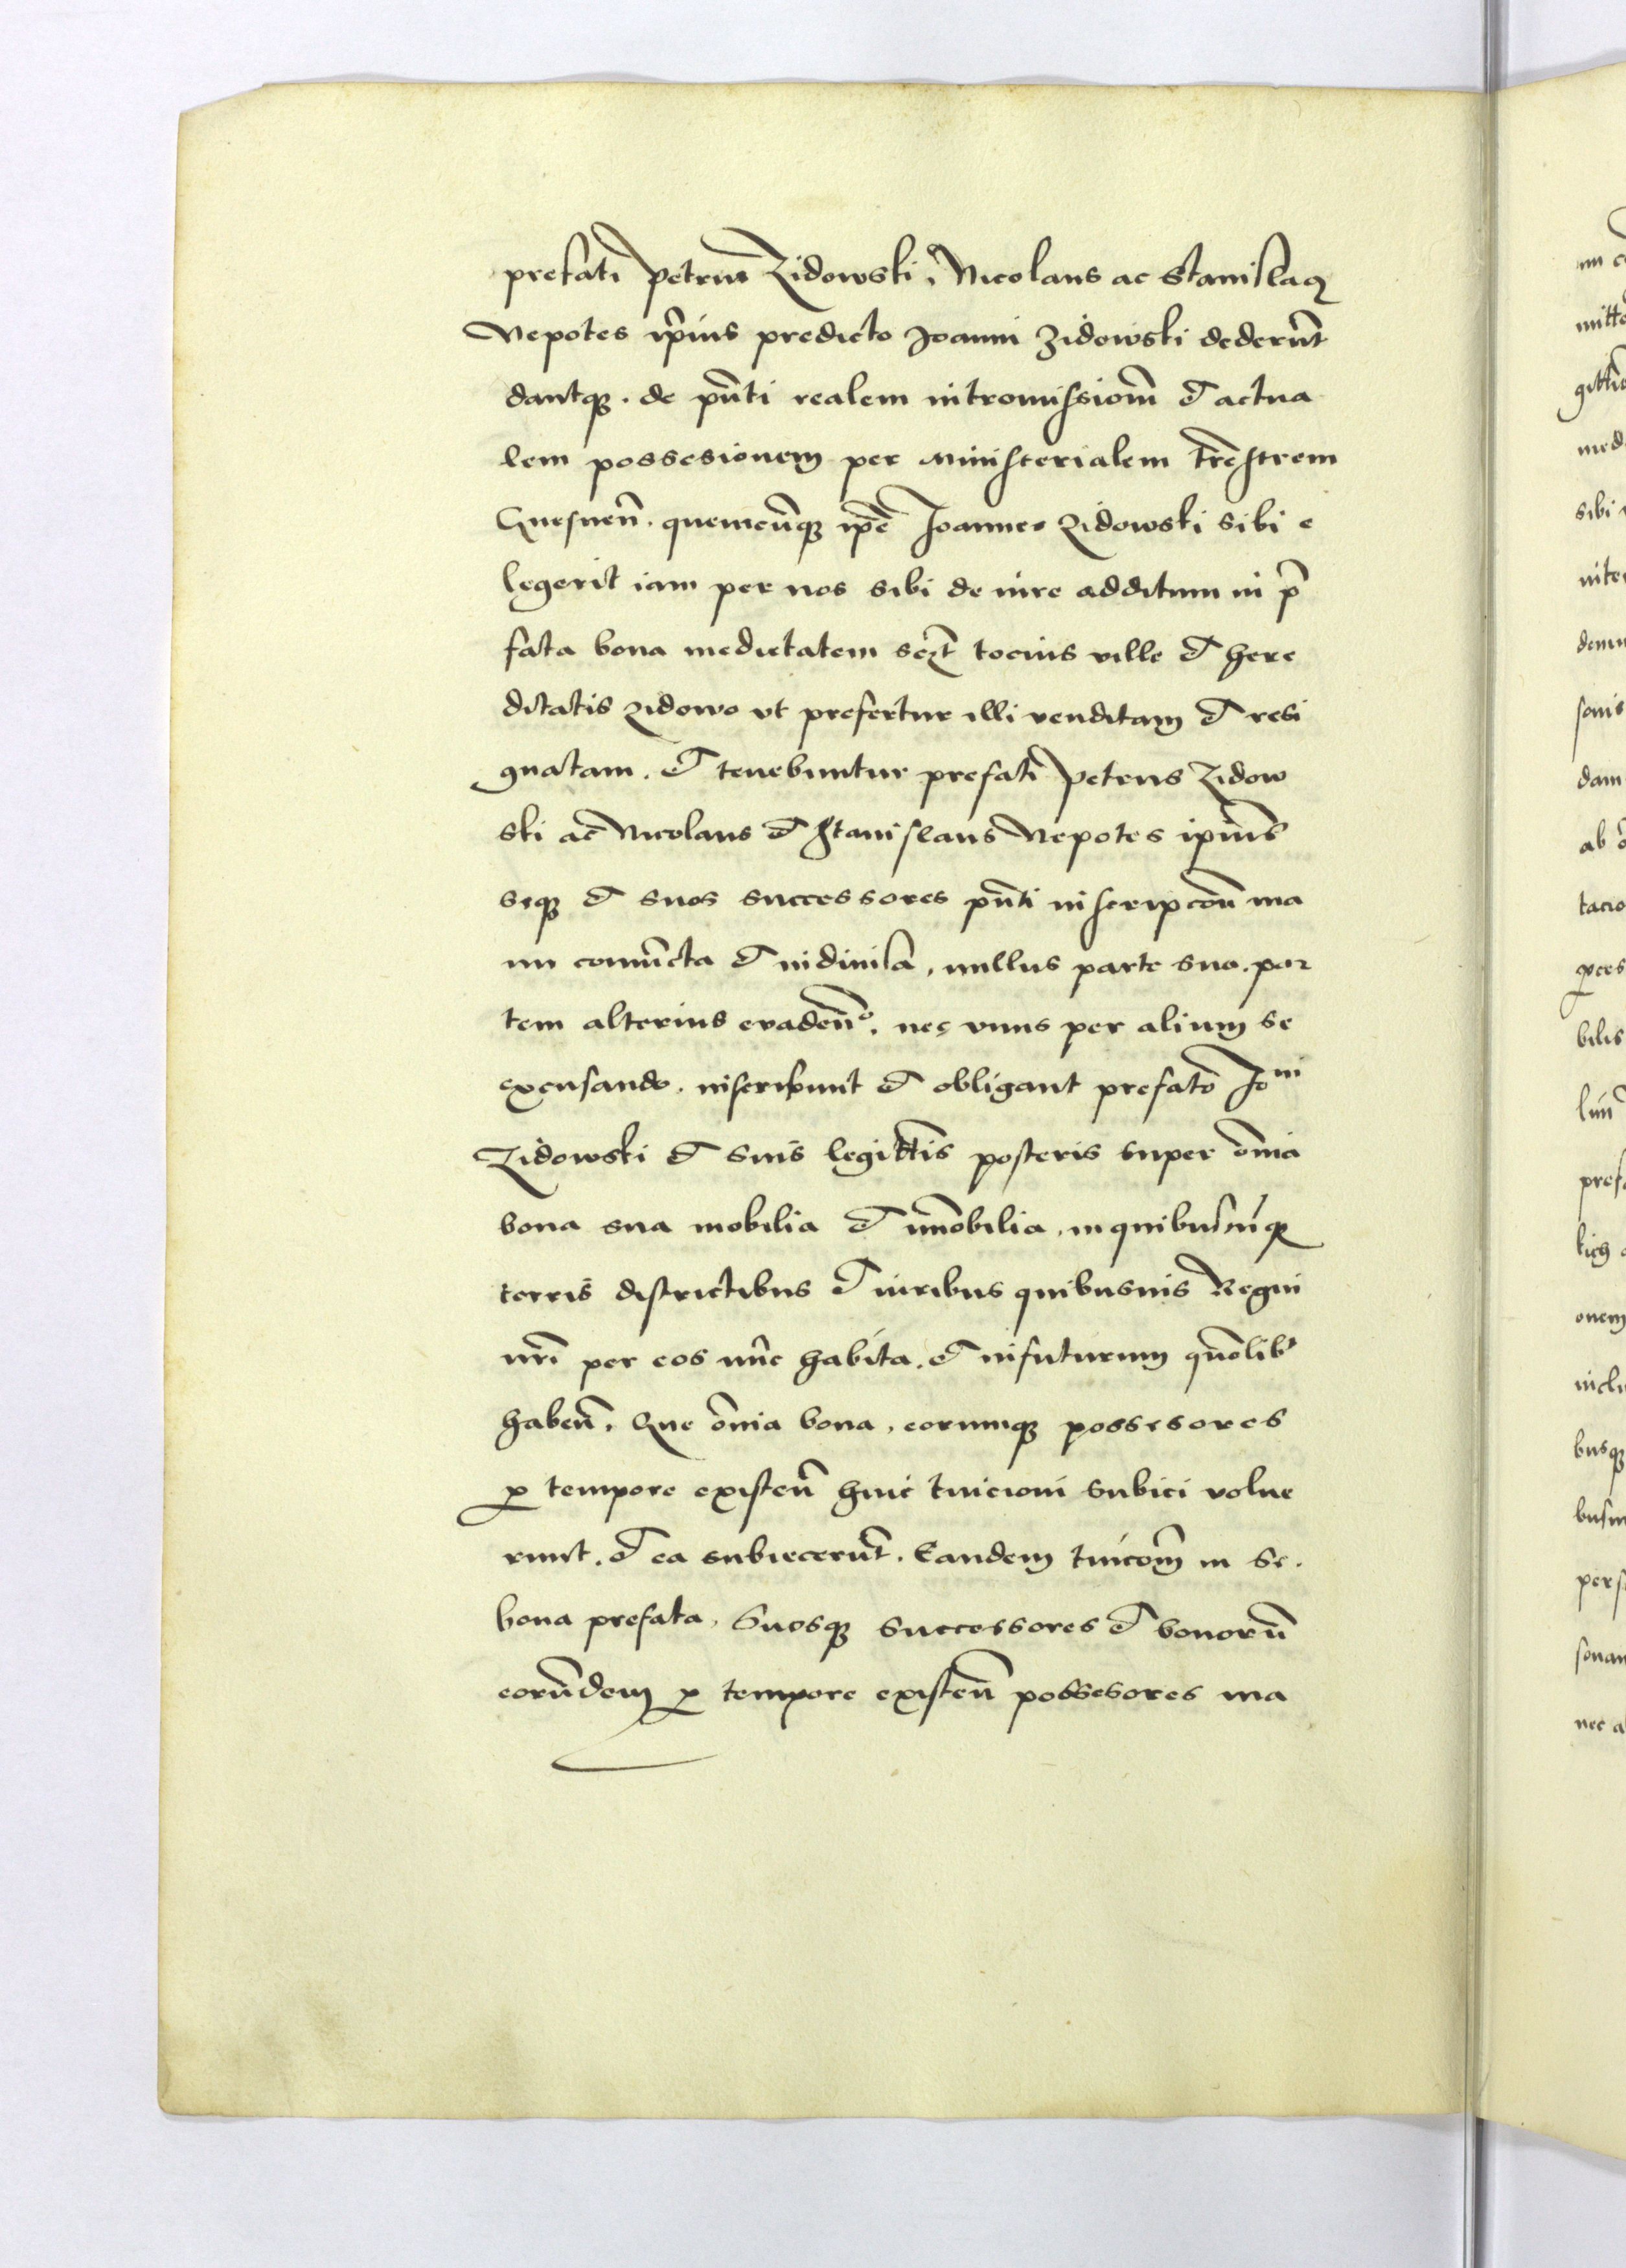 prefati Petrus Zidowski, Nicolaus ac Stanislaꝰ
Nepotes ip̄ius predicto Joanni Zidowski dederūt
dantqꝫ. de pn̄ti realem intromissiom̄ et actua
lem possesionem per ministerialem trēstrem
Gnesnen̄. quemcūqꝫ ip̄e Joannes Zidowski sibi e
legerit iam per nos sibi de iure additum in p̄
fata bona medietatem scꝫt tocius ville et here
ditatis Zidowo vt prefertur illi venditam et resi
gnatam. et tenebuntur prefati Petrus Zidow
ski ac Nicolaus et Stanislaus Nepotes ipīus
seqꝫ et suos successores pn̄ti inscripcōn̄ ma
nu coniūcta et indiuisa, nullus parte sua. par
tem alterius evaden̄o. nec vnus per alium se
excusando. inscribunt et obligant prefato Joni
Zidowski et suis legittīs posteris super om̄ia
bona sua mobilia et im̄obilia, in quibuscūqꝫ
terris districtibus et iuribus quibusuis Regni
nrī per eos nūc habita. et infuturum quōlibet
haben̄. Que om̄ia bona, eorumqꝫ possesores
ꝓ tempore existen̄ huic tuicioni subici volue
runt. et ea subiecerūt. Eandem tuicom̄ in se.
bona prefata, Suosqꝫ successores et bonorū
eorūdem ꝓ tempore existen̄ possesores ma